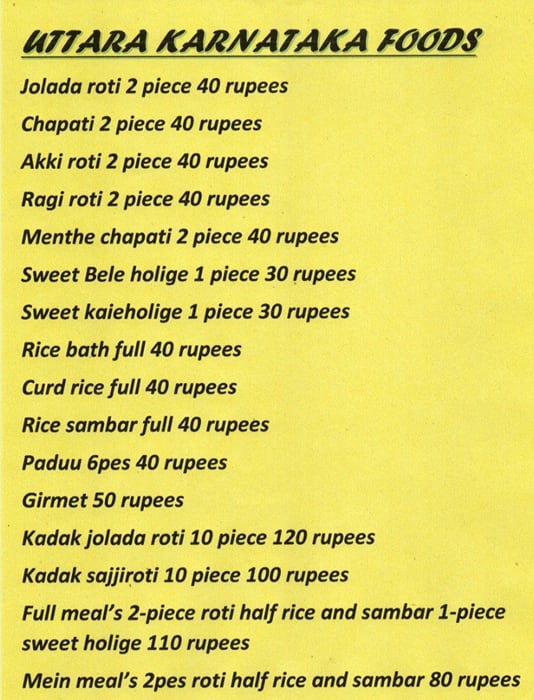 UTTARA KARNATAKA FOODS
Jolada roti 2 piece 40 rupees
Chapati 2 piece 40 rupees
Akki roti 2 piece 40 rupees
Ragi roti 2 piece 40 rupees
Menthe chapati 2 piece 40 rupees
Sweet Bele holige 1 piece 30 rupees
Sweet kaieholige 1 piece 30 rupees
Rice bath full 40 rupees
Curd rice full 40 rupees
Rice sambar full 40 rupees
Paduu 6pes 40 rupees
Girmet 50 rupees
Kadak jolada roti 10 piece 120 rupees
Kadak sajjiroti 10 piece 100 rupees
Full meal's 2-piece roti half rice and sambar 1-piece
sweet holige 110 rupees
Mein meal's 2pes roti half rice and sambar 80 rupees